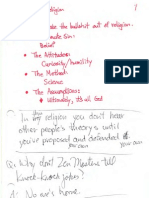 religion
the bullshit out of religion.
Sin:
Belief
• The Attitudes:
Curiosity/humility
• The Method:
Science
• The Assumptions:
Ultimately, it's all God
In this religion you don't have
other people's theories until
you've proposed and defended
your own
Q: Why don't Zen Masters tell
knock-knock jokes?
A: No one's home.